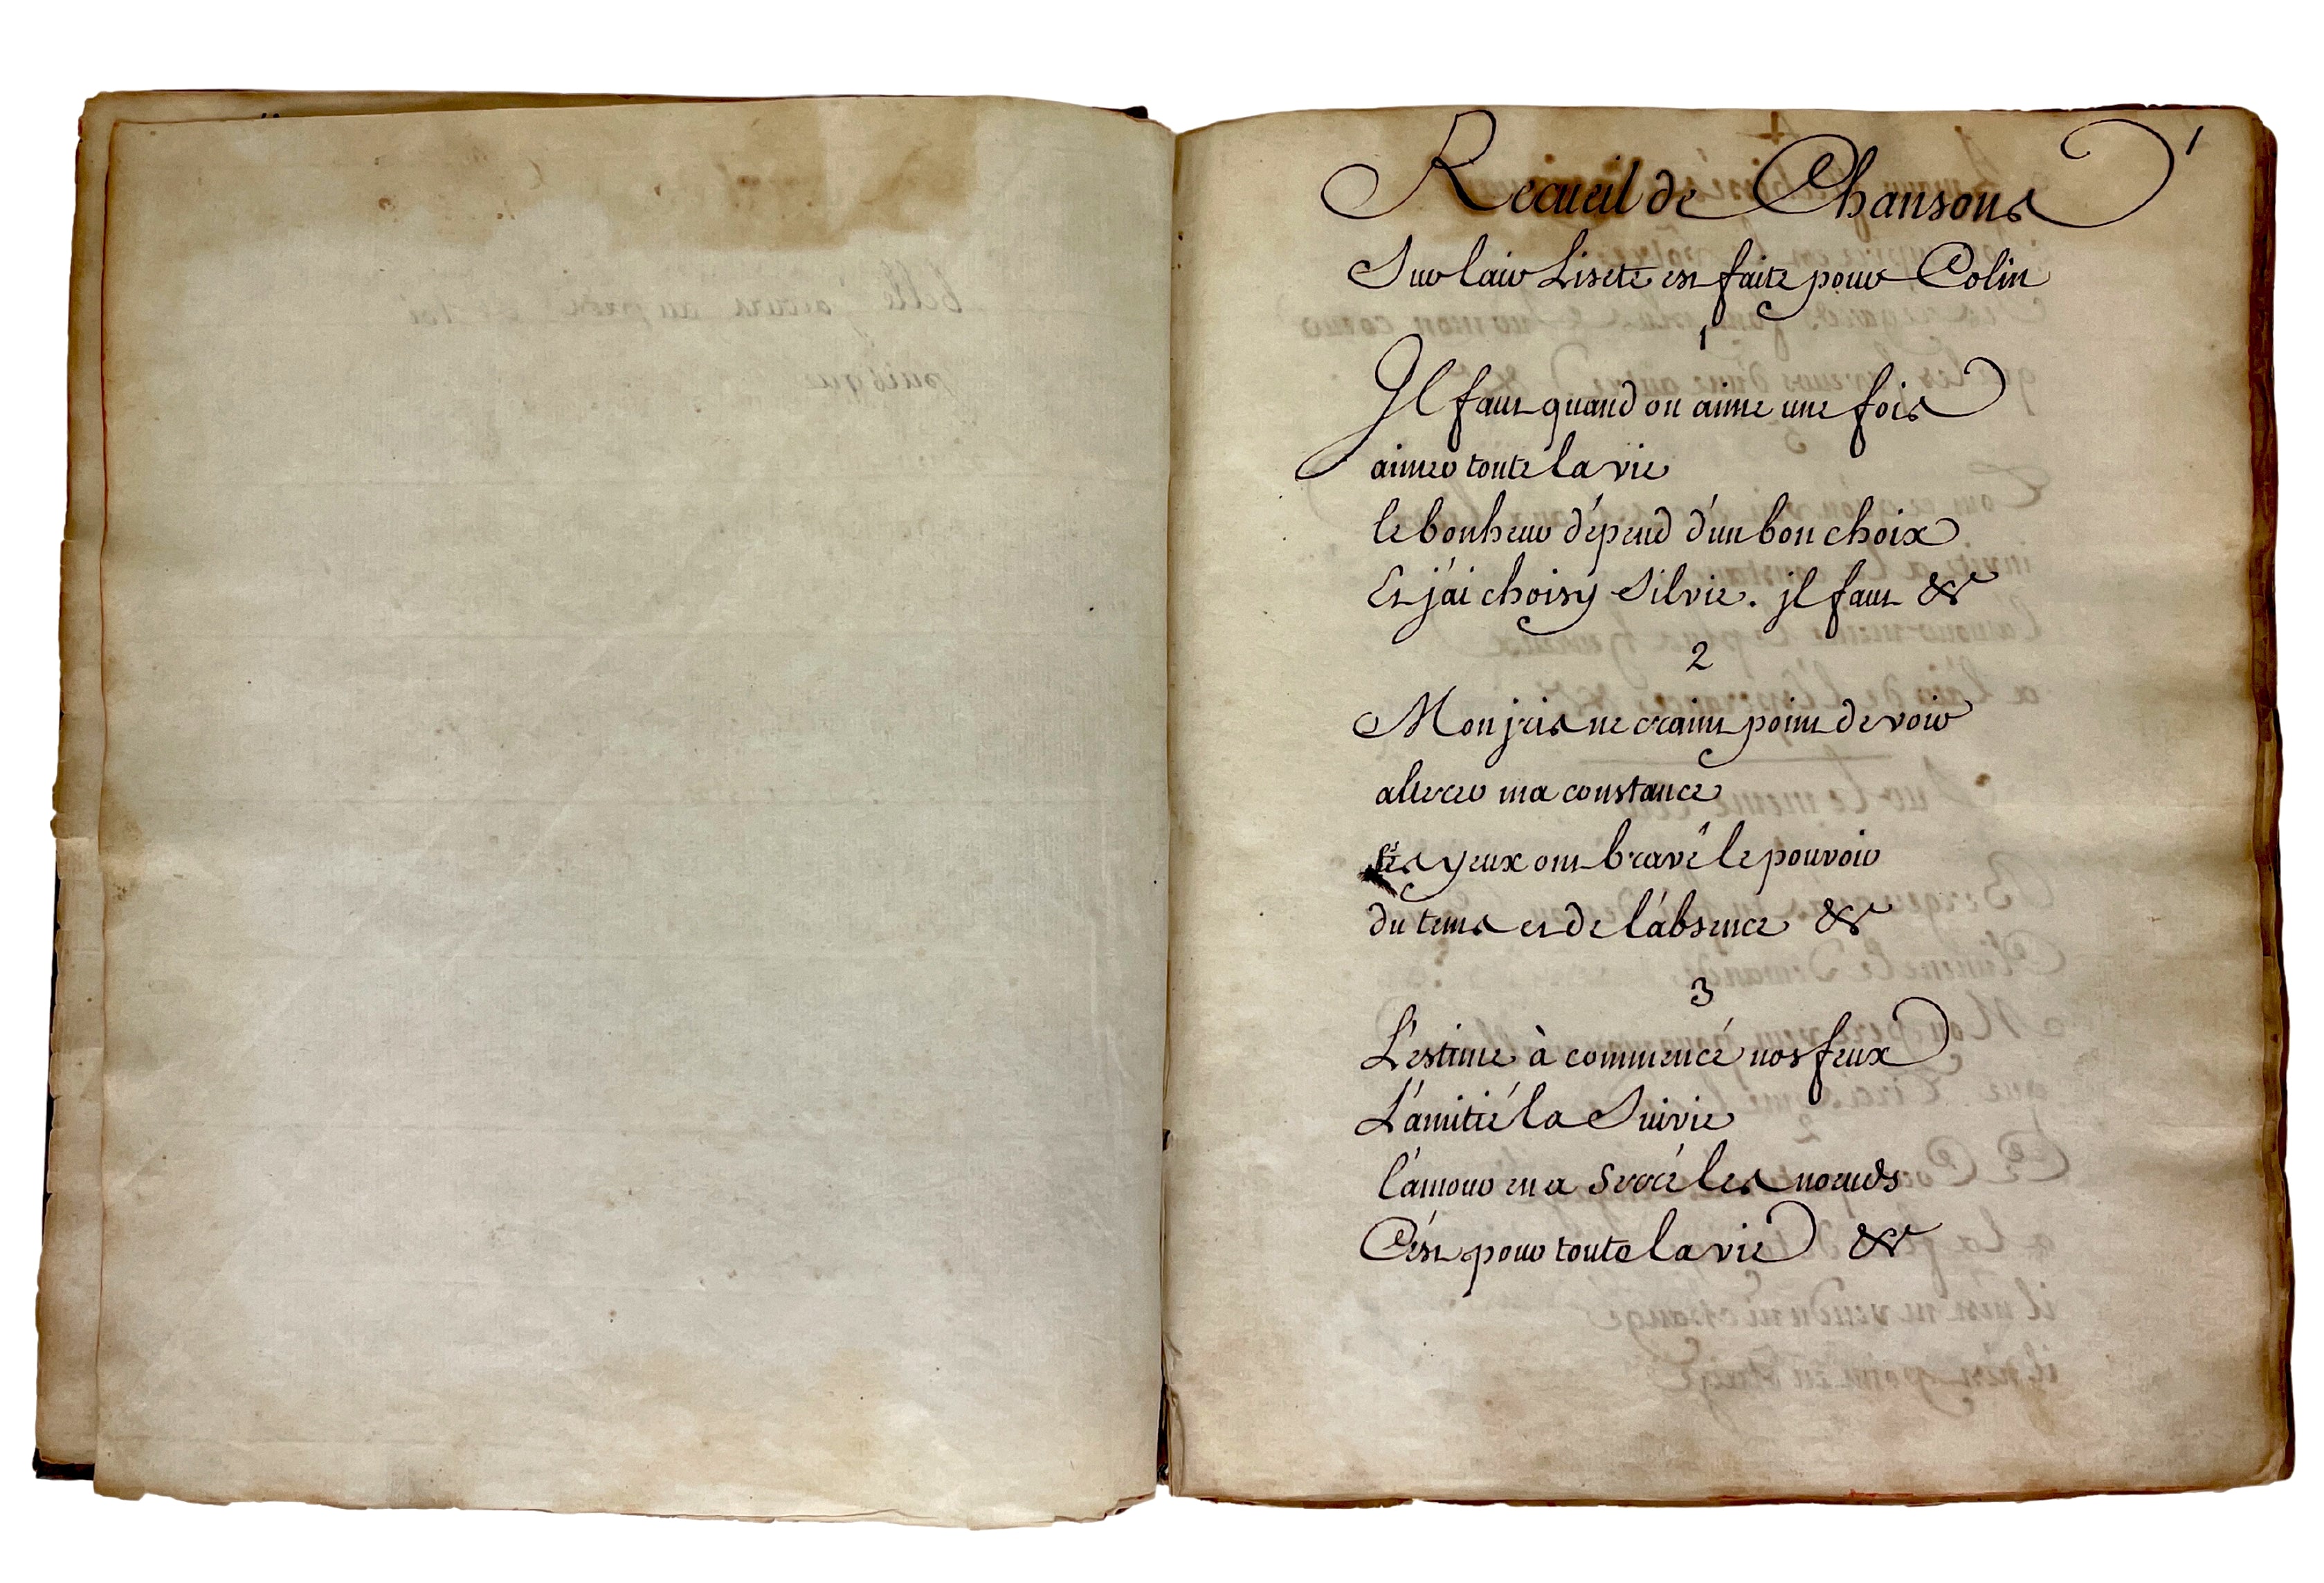 1
Recueil de Chansons
Sur lair Lisete est faite pour Colin
1
Il faut quand on aime une fois
aimer toute la vie
le bonheur dépend d'un bon choix
Et j'ai choisy Silvie. jl faut &c
2
Mon jris ne craint point de voir
alterer ma constance
ses yeux ont bravé le pouvoir
du tems et de l'absence &c
3
L'estime à commencé nos feux
L'amitié la Suivie
l'amour en a Serré les noeuds
C'est pour toute la vie &c